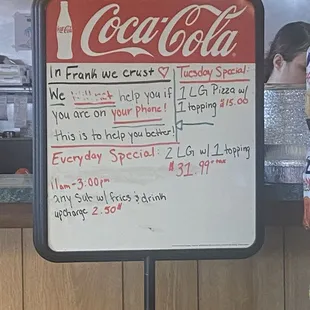 Coca-Cola
In Frank we crust
We will not help you if
you are on your phone!
this is to help you better!
Tuesday Special:
1 LG Pizza w/
1 topping $15.00
Everyday Special: 2 LG w/ 1 topping
$31.99
11am-3:00pm
any Sub w/ fries & drink
upcharge 2.50